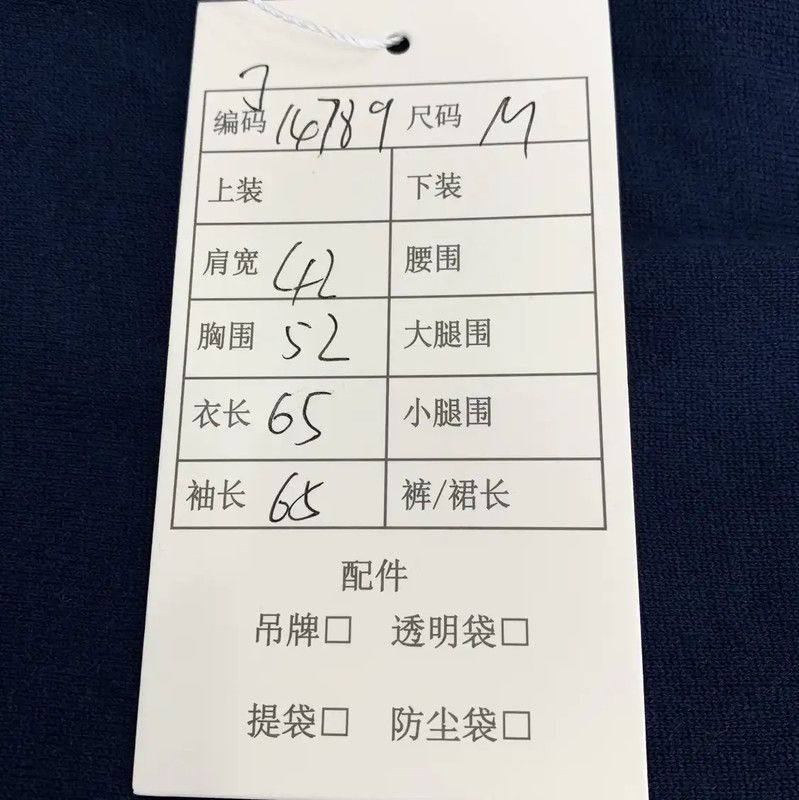 编码 14789 尺码 M
上装 下装
肩宽 42 腰围
胸围 52 大腿围
衣长 65 小腿围
袖长 65 裤/裙长
配件
吊牌□ 透明袋□
提袋□ 防尘袋□